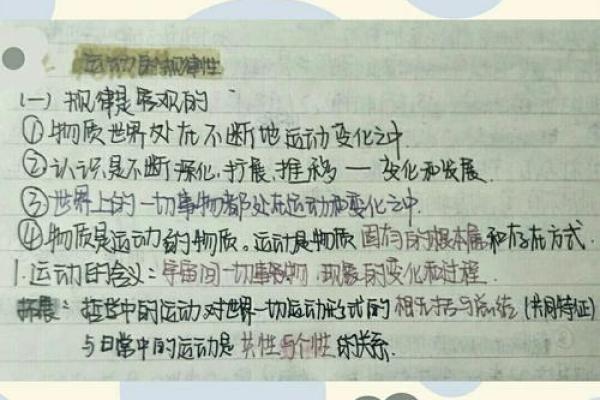 运动的规律性
(一) 规律是客观的
①物质世界处在不断地运动变化之中
②认识是不断深化、扩展、推移——变化和发展.
③世界上的一切事物都处在运动和变化之中.
④物质是运动的物质。运动是物质固有的根本属性和存在方式.
1.运动的含义:宇宙间一切事物、现象的变化和过程.
拓展:哲学中的运动对世界一切运动形式的概括与总结(共同特征)
与日常中的运动是共性与个性的关系.